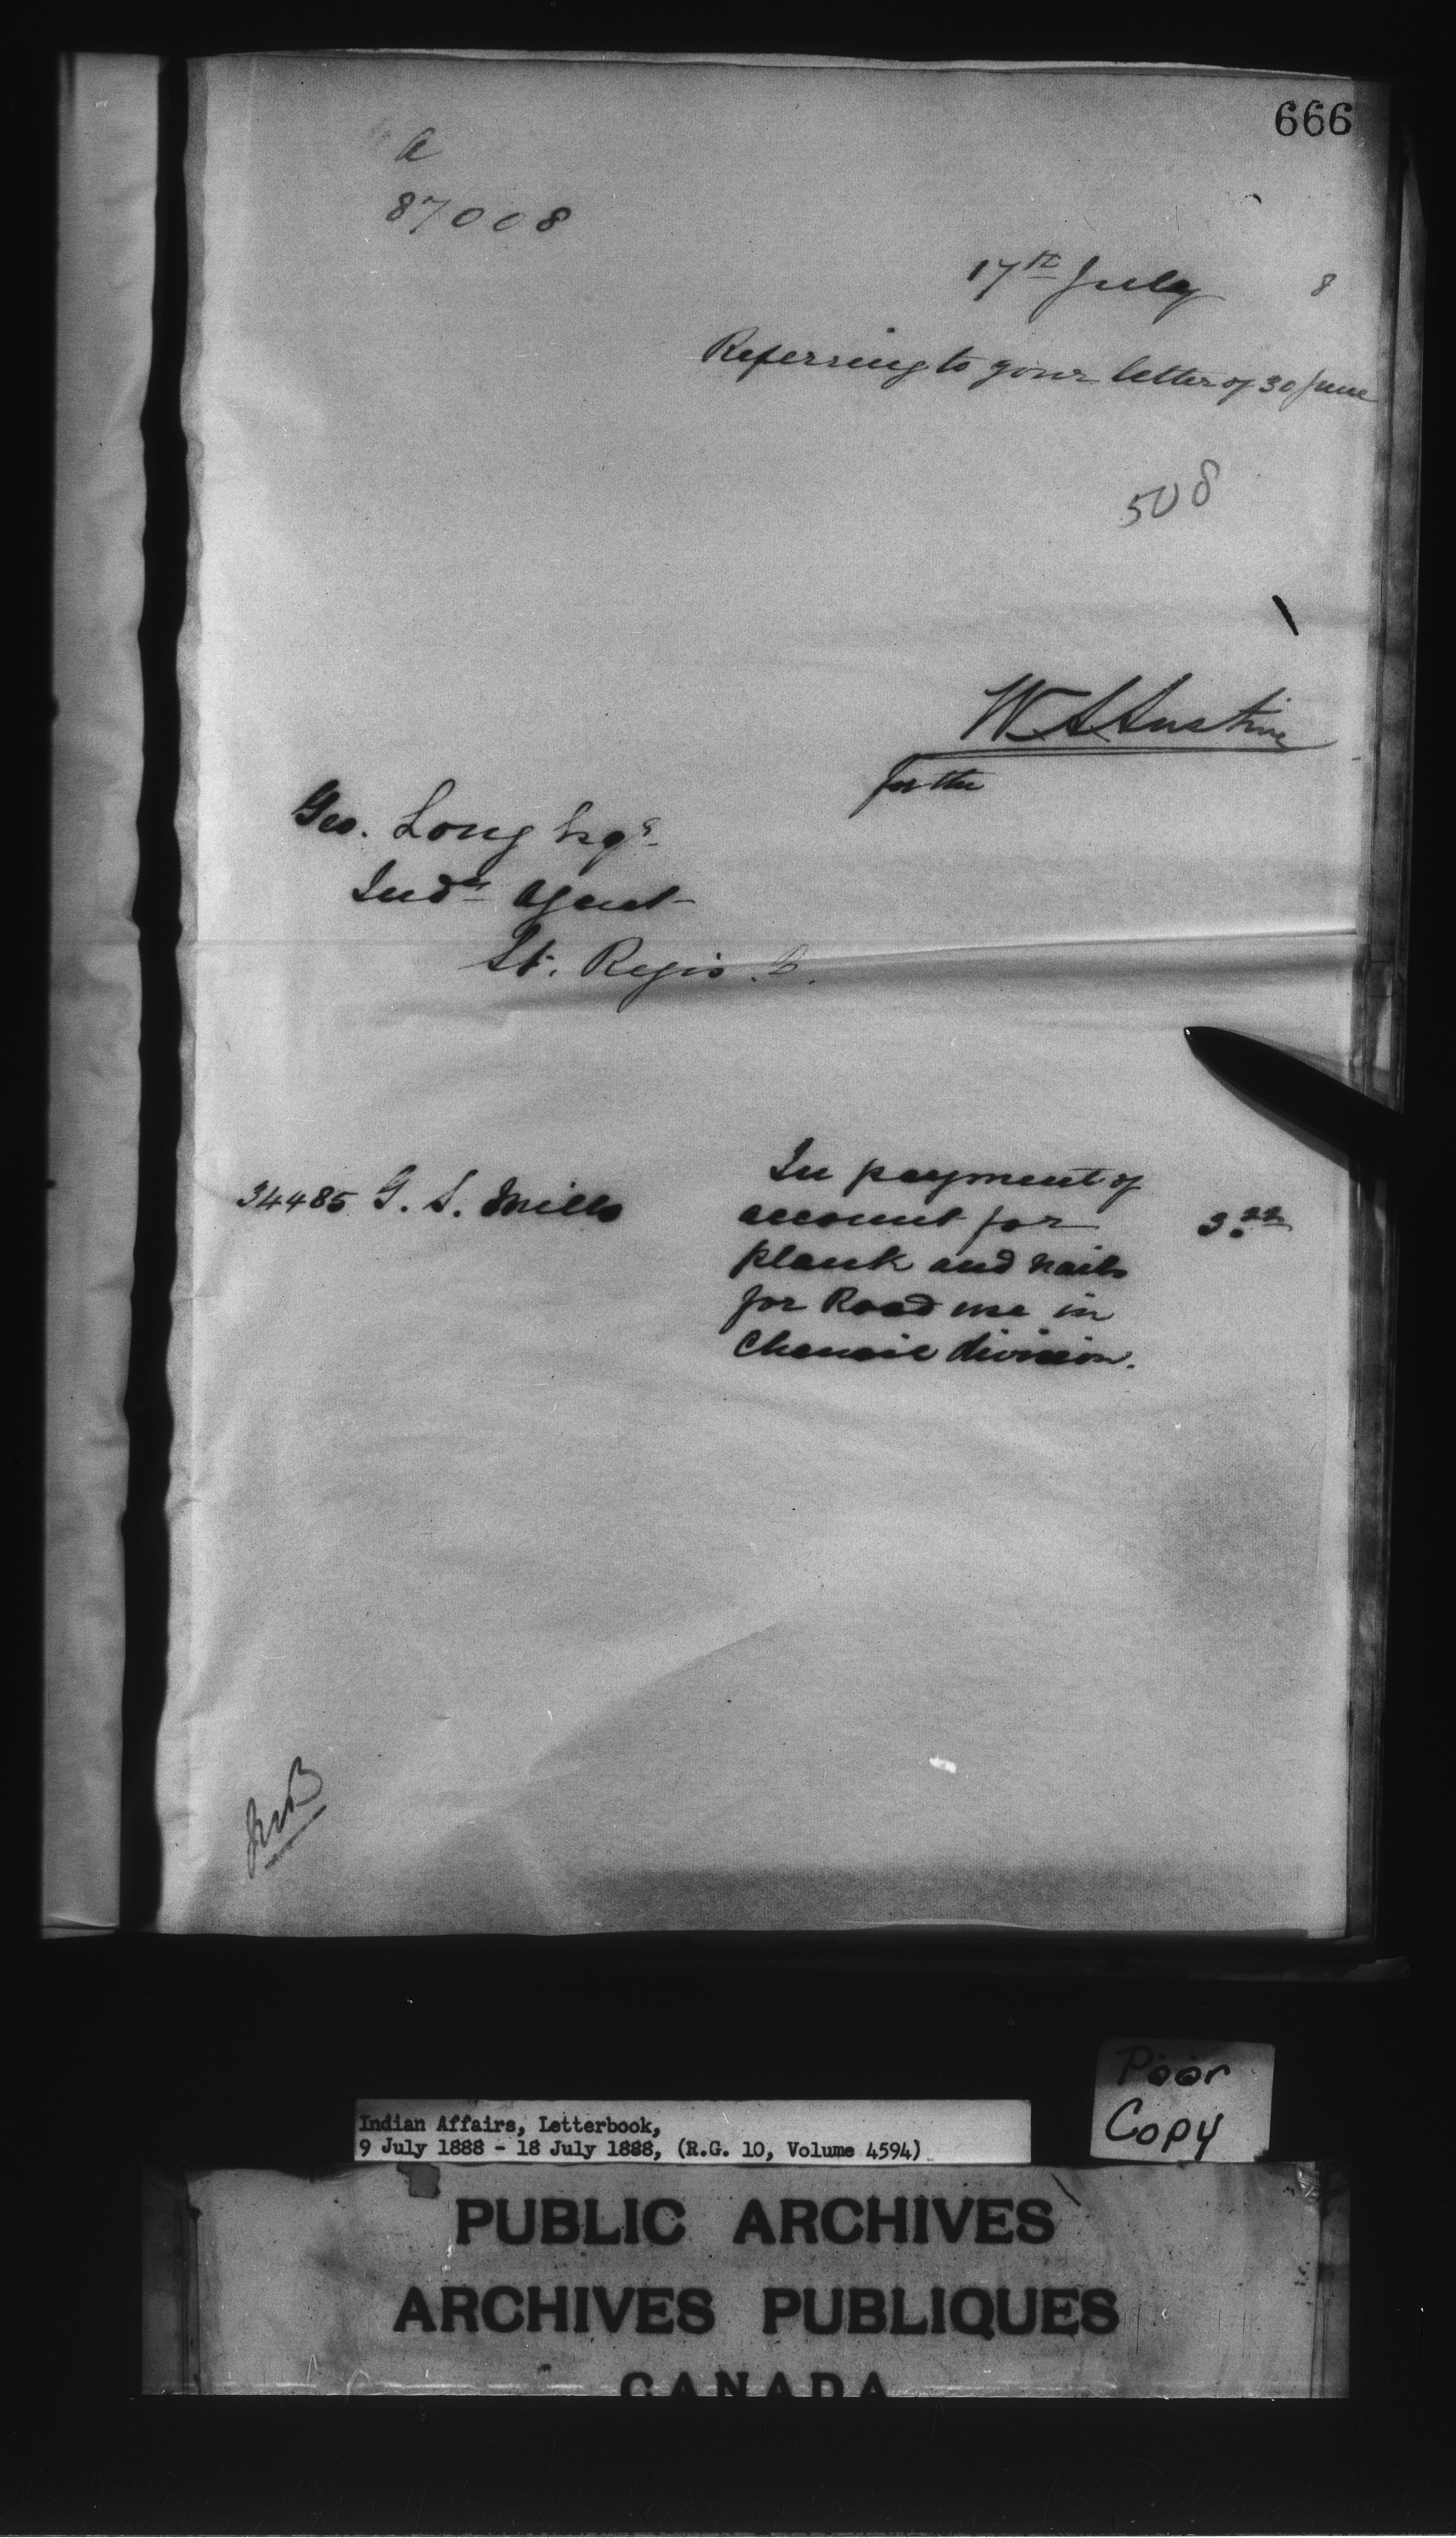 666
A
87008
17th July 8
Referring to your letter of 30 June
508
W A Austin
for the
Geo. Long Esqr
Indn Agent
St. Regis. Q.
34485 G. S. Mills
In payment of
account for 3.22
plank and nails
for Road use in
Chenail division.
Poor
Copy
Indian Affairs, Letterbook,
9 July 1888 - 18 July 1888, (R.G. 10, Volume 4594)
PUBLIC ARCHIVES
ARCHIVES PUBLIQUES
CANADA